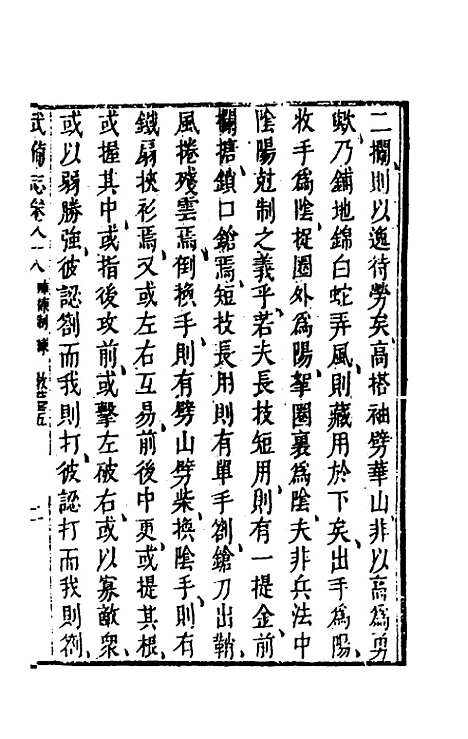 二攔則以逸待勞矣高搭袖劈華山非以高為勇
歟乃鋪地錦白蛇弄風則藏用於下矣出手為陽
收手為陰捉圈外為陽拏圈裏為陰夫非兵法中
陰陽尅制之義乎若夫長技短用則有一提金前
攔搪鎖口鎗焉短技長用則有單手劄鎗刀出鞘
風捲殘雲焉倒換手則有劈山劈柴換陰手則有
鐵扇挾衫焉又或左右互易前後中更或提其根
或握其中或指後攻前或擊左破右或以寡敵衆
或以弱勝強彼認劄而我則打彼認打而我則劄
武備志卷八十八 陣練制 練 教藝五
二